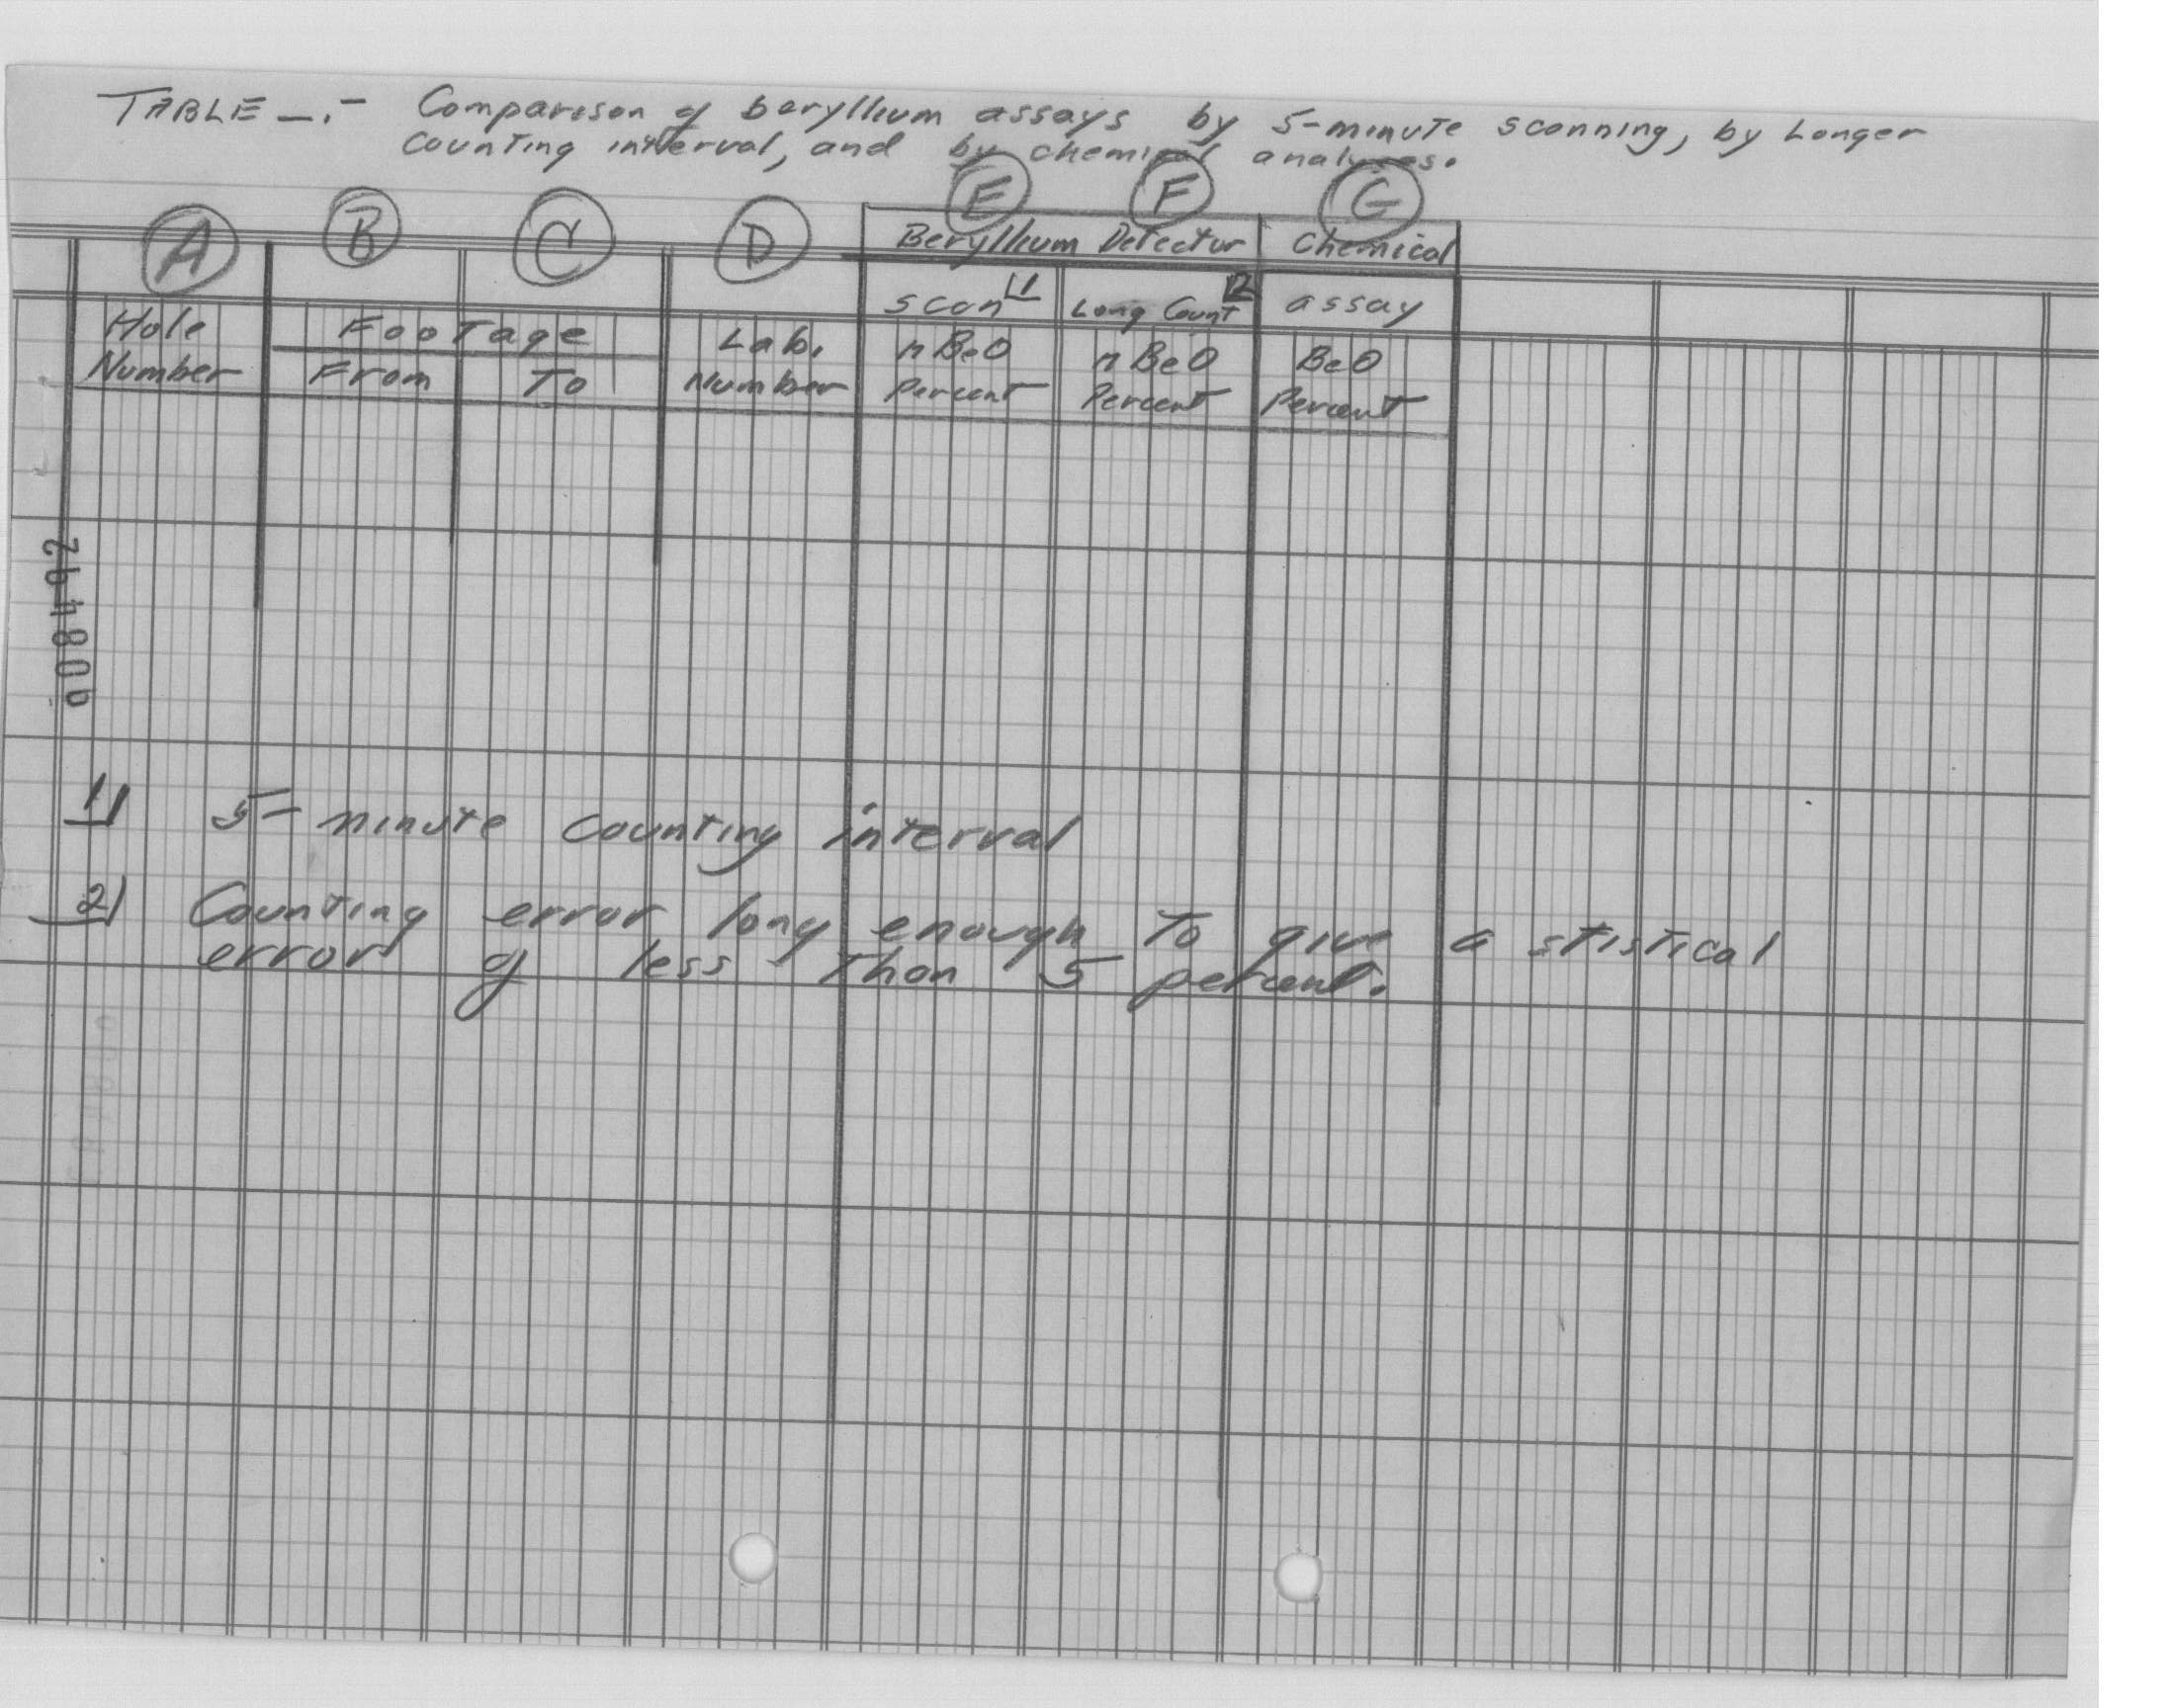 TABLE —.- Comparison of beryllium assays by 5-minute scanning, by Longer
counting interval, and by chemical analyses.
A B C D E F G
Beryllium Detector Chemical
scan 1/ Long Count 2/ assay
Hole Footage Lab. n BeO n BeO BeO
Number From To Number Percent Percent Percent
008492
1/ 5-minute counting interval
2/ Counting error long enough To give a stistical
error of less Than 5 percent.